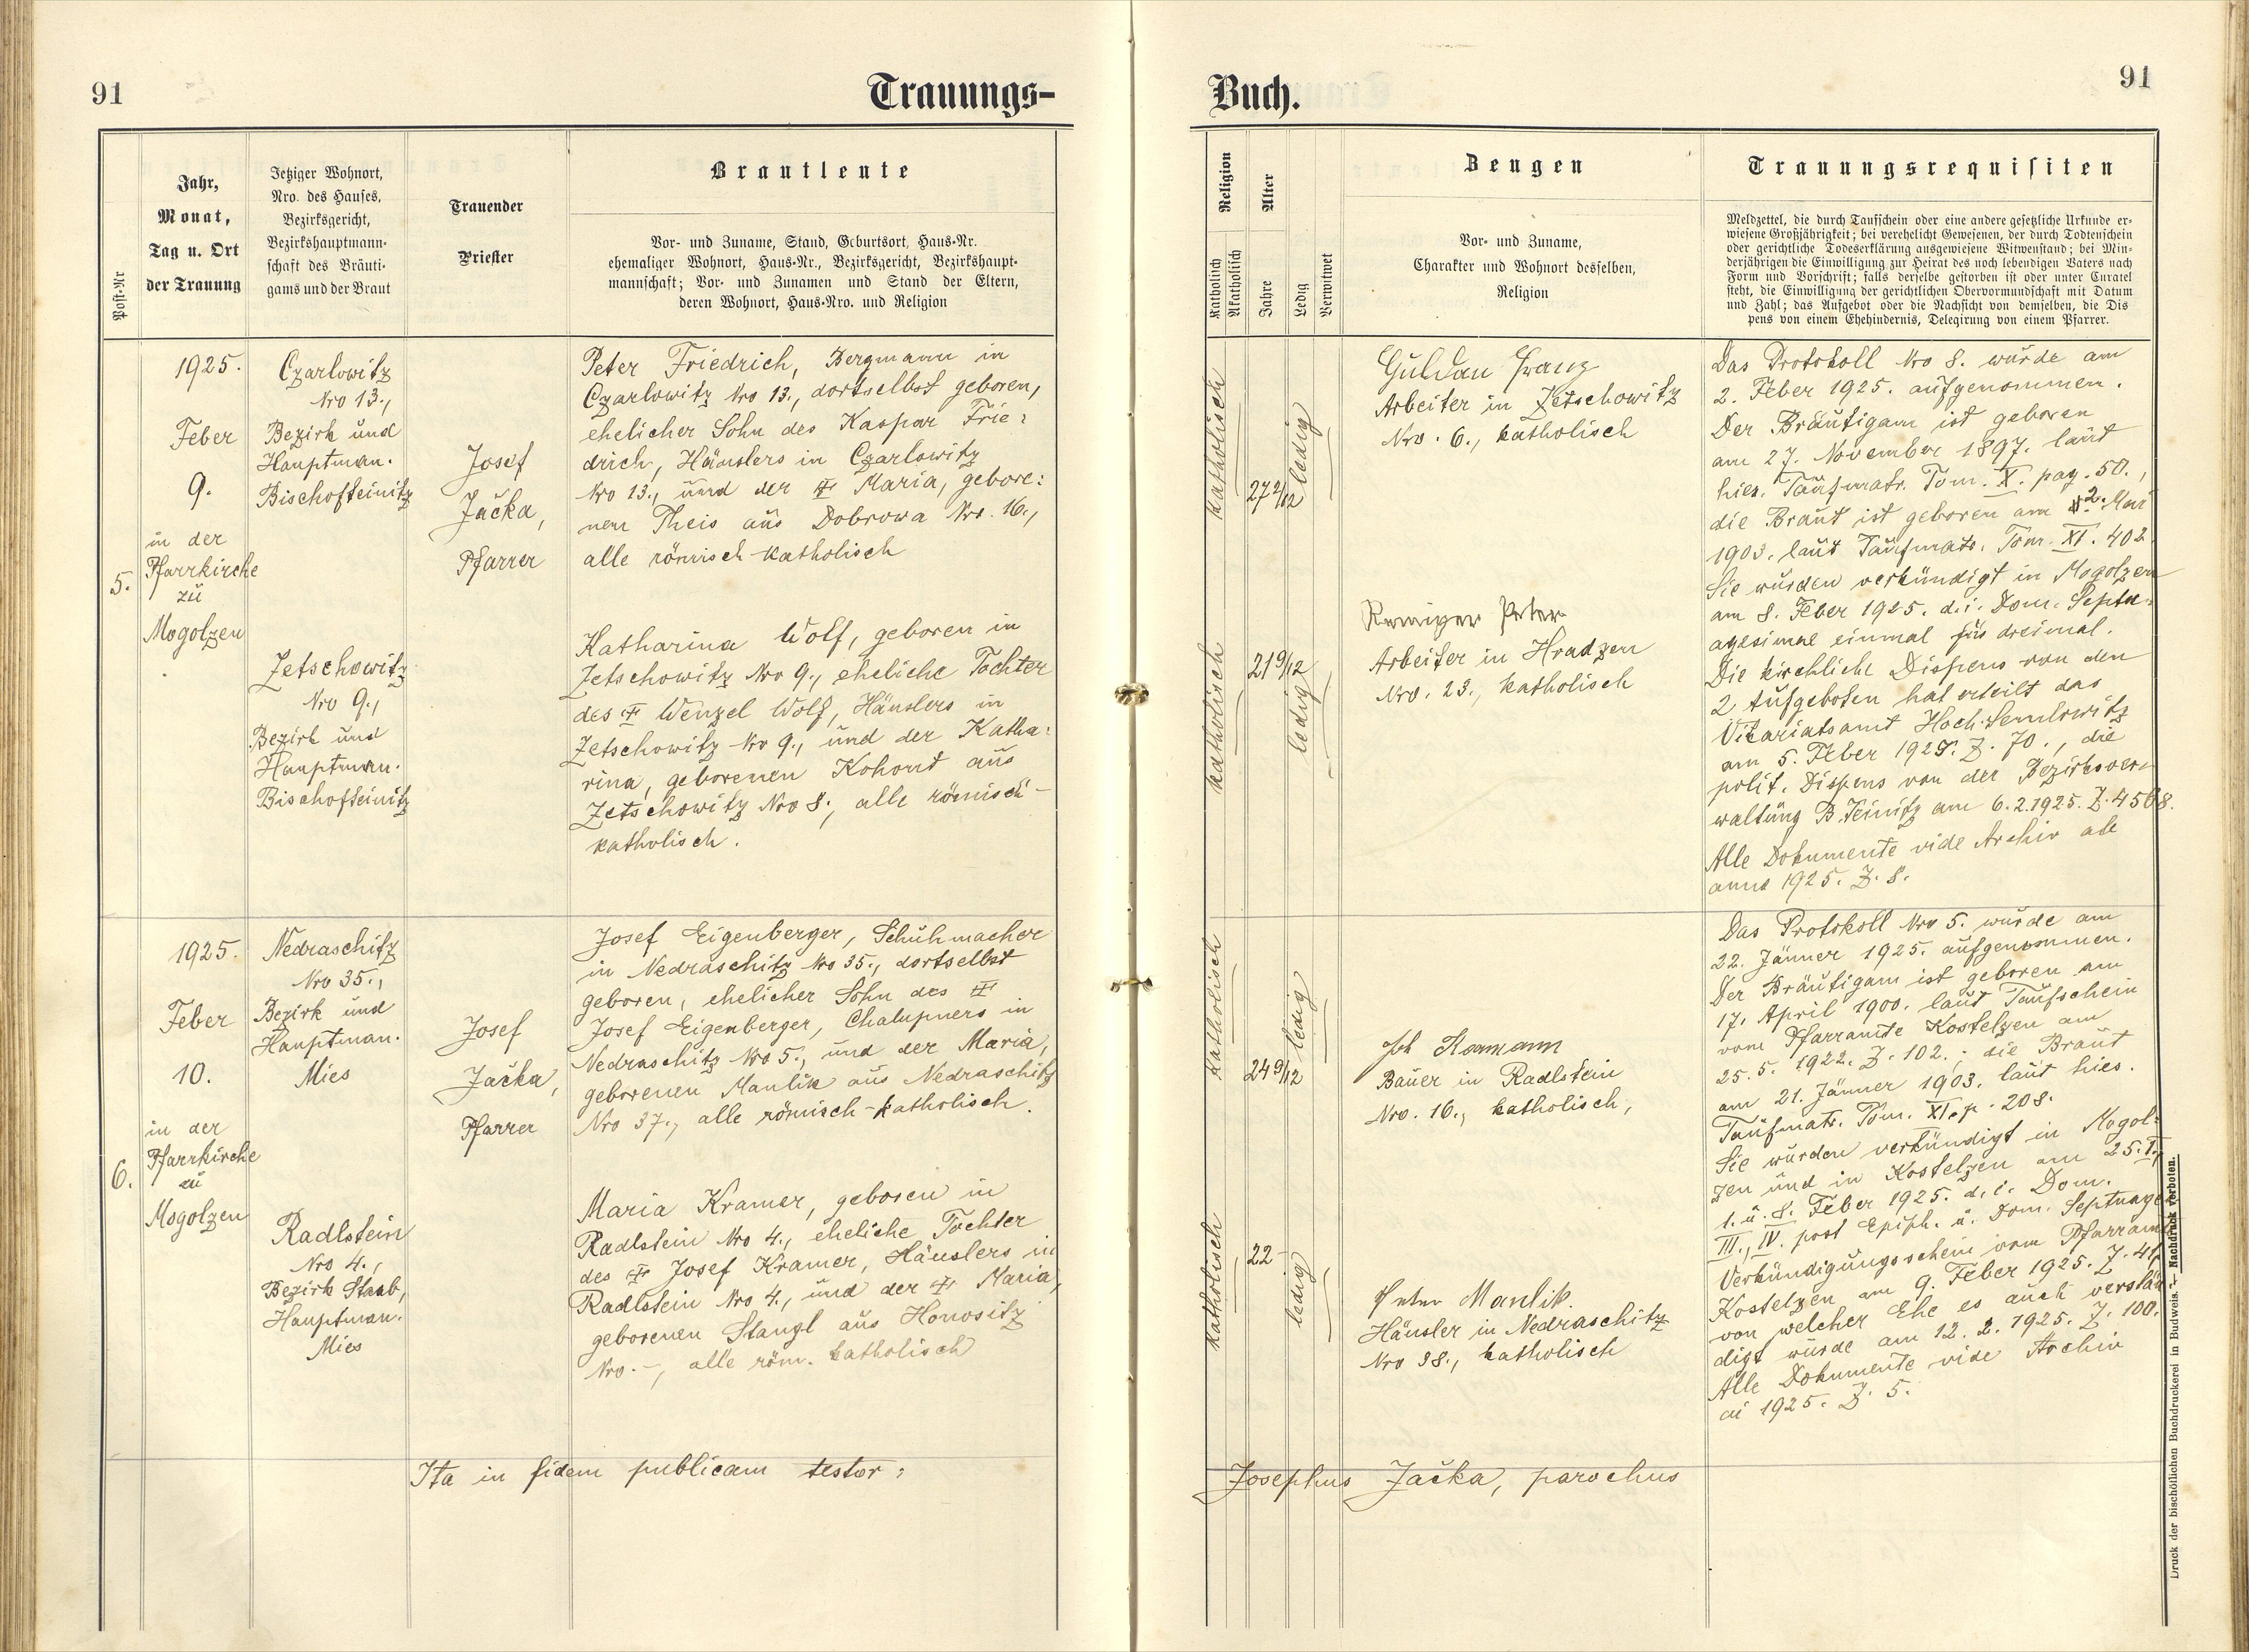 91
Trauungs-
Post-Nr
Jahr,
Monat,
Tag u. Ort
der Trauung
Jetziger Wohnort,
Nro. des Hauses,
Bezirksgericht,
Bezirkshauptmann-
schaft des Bräuti-
gams und der Braut
Trauender
Priester
Brautleute
Vor- und Zuname, Stand, Geburtsort, Haus-Nr.
ehemaliger Wohnort, Haus-Nr., Bezirksgericht, Bezirkshaupt-
mannschaft; Vor- und Zunamen und Stand der Eltern,
deren Wohnort, Haus-Nro. und Religion
5.
1925.
Feber
9.
in der
Pfarrkirche
zu
Mogolzen
Czarlowitz
Nro 13.,
Bezirk und
Hauptman.
Bischofteinitz
Zetschowitz
Nro 9.,
Bezirk und
Hauptman.
Bischofteinitz
Josef
Jačka,
Pfarrer
Peter Friedrich, Bergmann in
Czarlowitz Nro 13., dortselbst geboren,
ehelicher Sohn des Kaspar Frie:
drich, Häuslers in Czarlowitz
Nro 13., und der ‡ Maria, gebore:
nen Theis aus Dobrowa Nro. 16.,
alle römisch-katholisch
Katharina Wolf, geboren in
Zetschowitz Nro 9., eheliche Tochter
des ‡ Wenzel Wolf, Häuslers in
Zetschowitz Nro 9., und der Katha:
rina, geborenen Kohout aus
Zetschowitz Nro 8., alle römisch-
katholisch.
6.
1925.
Feber
10.
in der
Pfarrkirche
zu
Mogolzen
Nedraschitz
Nro 35.,
Bezirk und
Hauptman.
Mies
Radlstein
Nro 4.,
Bezirk Staab,
Hauptman.
Mies
Josef
Jačka,
Pfarrer
Josef Eigenberger, Schuhmacher
in Nedraschitz Nro 35., dortselbst
geboren, ehelicher Sohn des ‡
Josef Eigenberger, Chalupners in
Nedraschitz Nro 5., und der Maria,
geborenen Manlik aus Nedraschitz
Nro 37., alle römisch-katholisch.
Maria Kramer, geboren in
Radlstein Nro 4., eheliche Tochter
des ‡ Josef Kramer, Häuslers in
Radlstein Nro 4., und der ‡ Maria,
geborenen Stangl aus Honositz
Nro. -, alle röm. katholisch
Ita in fidem publicam testor:
Buch.
91
Religion
Katholisch
Akatholisch
Alter
Jahre
Ledig
Verwitwet
Zeugen
Vor- und Zuname,
Charakter und Wohnort desselben,
Religion
Trauungsrequisiten
Meldzettel, die durch Taufschein oder eine andere gesetzliche Urkunde er-
wiesene Großjährigkeit; bei verehelicht Gewesenen, der durch Todtenschein
oder gerichtliche Todeserklärung ausgewiesene Witwenstand; bei Min-
derjährigen die Einwilligung zur Heirat des noch lebendigen Vaters nach
Form und Vorschrift; falls derselbe gestorben ist oder unter Curatel
steht, die Einwilligung der gerichtlichen Obervormundschaft mit Datum
und Zahl; das Aufgebot oder die Nachsicht von demselben, die Dis
pens von einem Ehehindernis, Delegirung von einem Pfarrer.
katholisch
27 2/12
ledig
katholisch
21 9/12
ledig
Guldan Franz
Arbeiter in Zetschowitz
Nro. 6., katholisch
Peter
Arbeiter in Hradzen
Nro. 23., katholisch
Das Protokoll Nro 8. wurde am
2. Feber 1925. aufgenommen.
Der Bräutigam ist geboren
am 27. November 1897. laut
hies. Taufmatr. Tom. X. pag. 50.,
die Braut ist geboren am 2. Mai
1903. laut Taufmatr. Tom. XI. 402.
Sie wurden verkündigt in Mogolzen
am 8. Feber 1925. d. i. Dom. Septu-
agesimae einmal für dreimal.
Die kirchliche Dispens von den
2 Aufgeboten hat erteilt das
Vikariatsamt Hoch-Semlowitz
am 5. Feber 1925. Z. 70., die
polit. Dispens von der Bezirksver-
waltung B. Teinitz am 6.2.1925. Z. 4568.
Alle Dokumente vide Archiv ab
anno 1925. Z. 8.
katholisch
24 9/12
ledig
katholisch
22
ledig
Joh
Bauer in Radlstein
Nro. 16., katholisch,
Peter Manlik.
Häusler in Nedraschitz
Nro 38., katholisch
Das Protokoll Nro 5. wurde am
22. Jänner 1925. aufgenommen.
Der Bräutigam ist geboren am
17. April 1900. laut Taufschein
vom Pfarramte Kostelzen am
25. 5. 1922. Z. 102.; die Braut
am 21. Jänner 1903. laut hies.
Taufmatr. Tom. XI. p. 208.
Sie wurden verkündigt in Mogol:
zen und in Kostelzen am 25. I.,
1. u. 8. Feber 1925. d. i. Dom.
III., IV. post Epiph. u. Dom. Septuage
Verkündigungsschein vom Pfarramte
Kostelzen am 9. Feber 1925. Z. 41,
von welcher Ehe es auch verstän
digt wurde am 12. 2. 1925. Z. 100.
Alle Dokumente vide Archiv
ai 1925. Z. 5.
Josephus Jačka, parochus
Druck der bischöflichen Buchdruckerei in Budweis. — Nachdruck verboten.